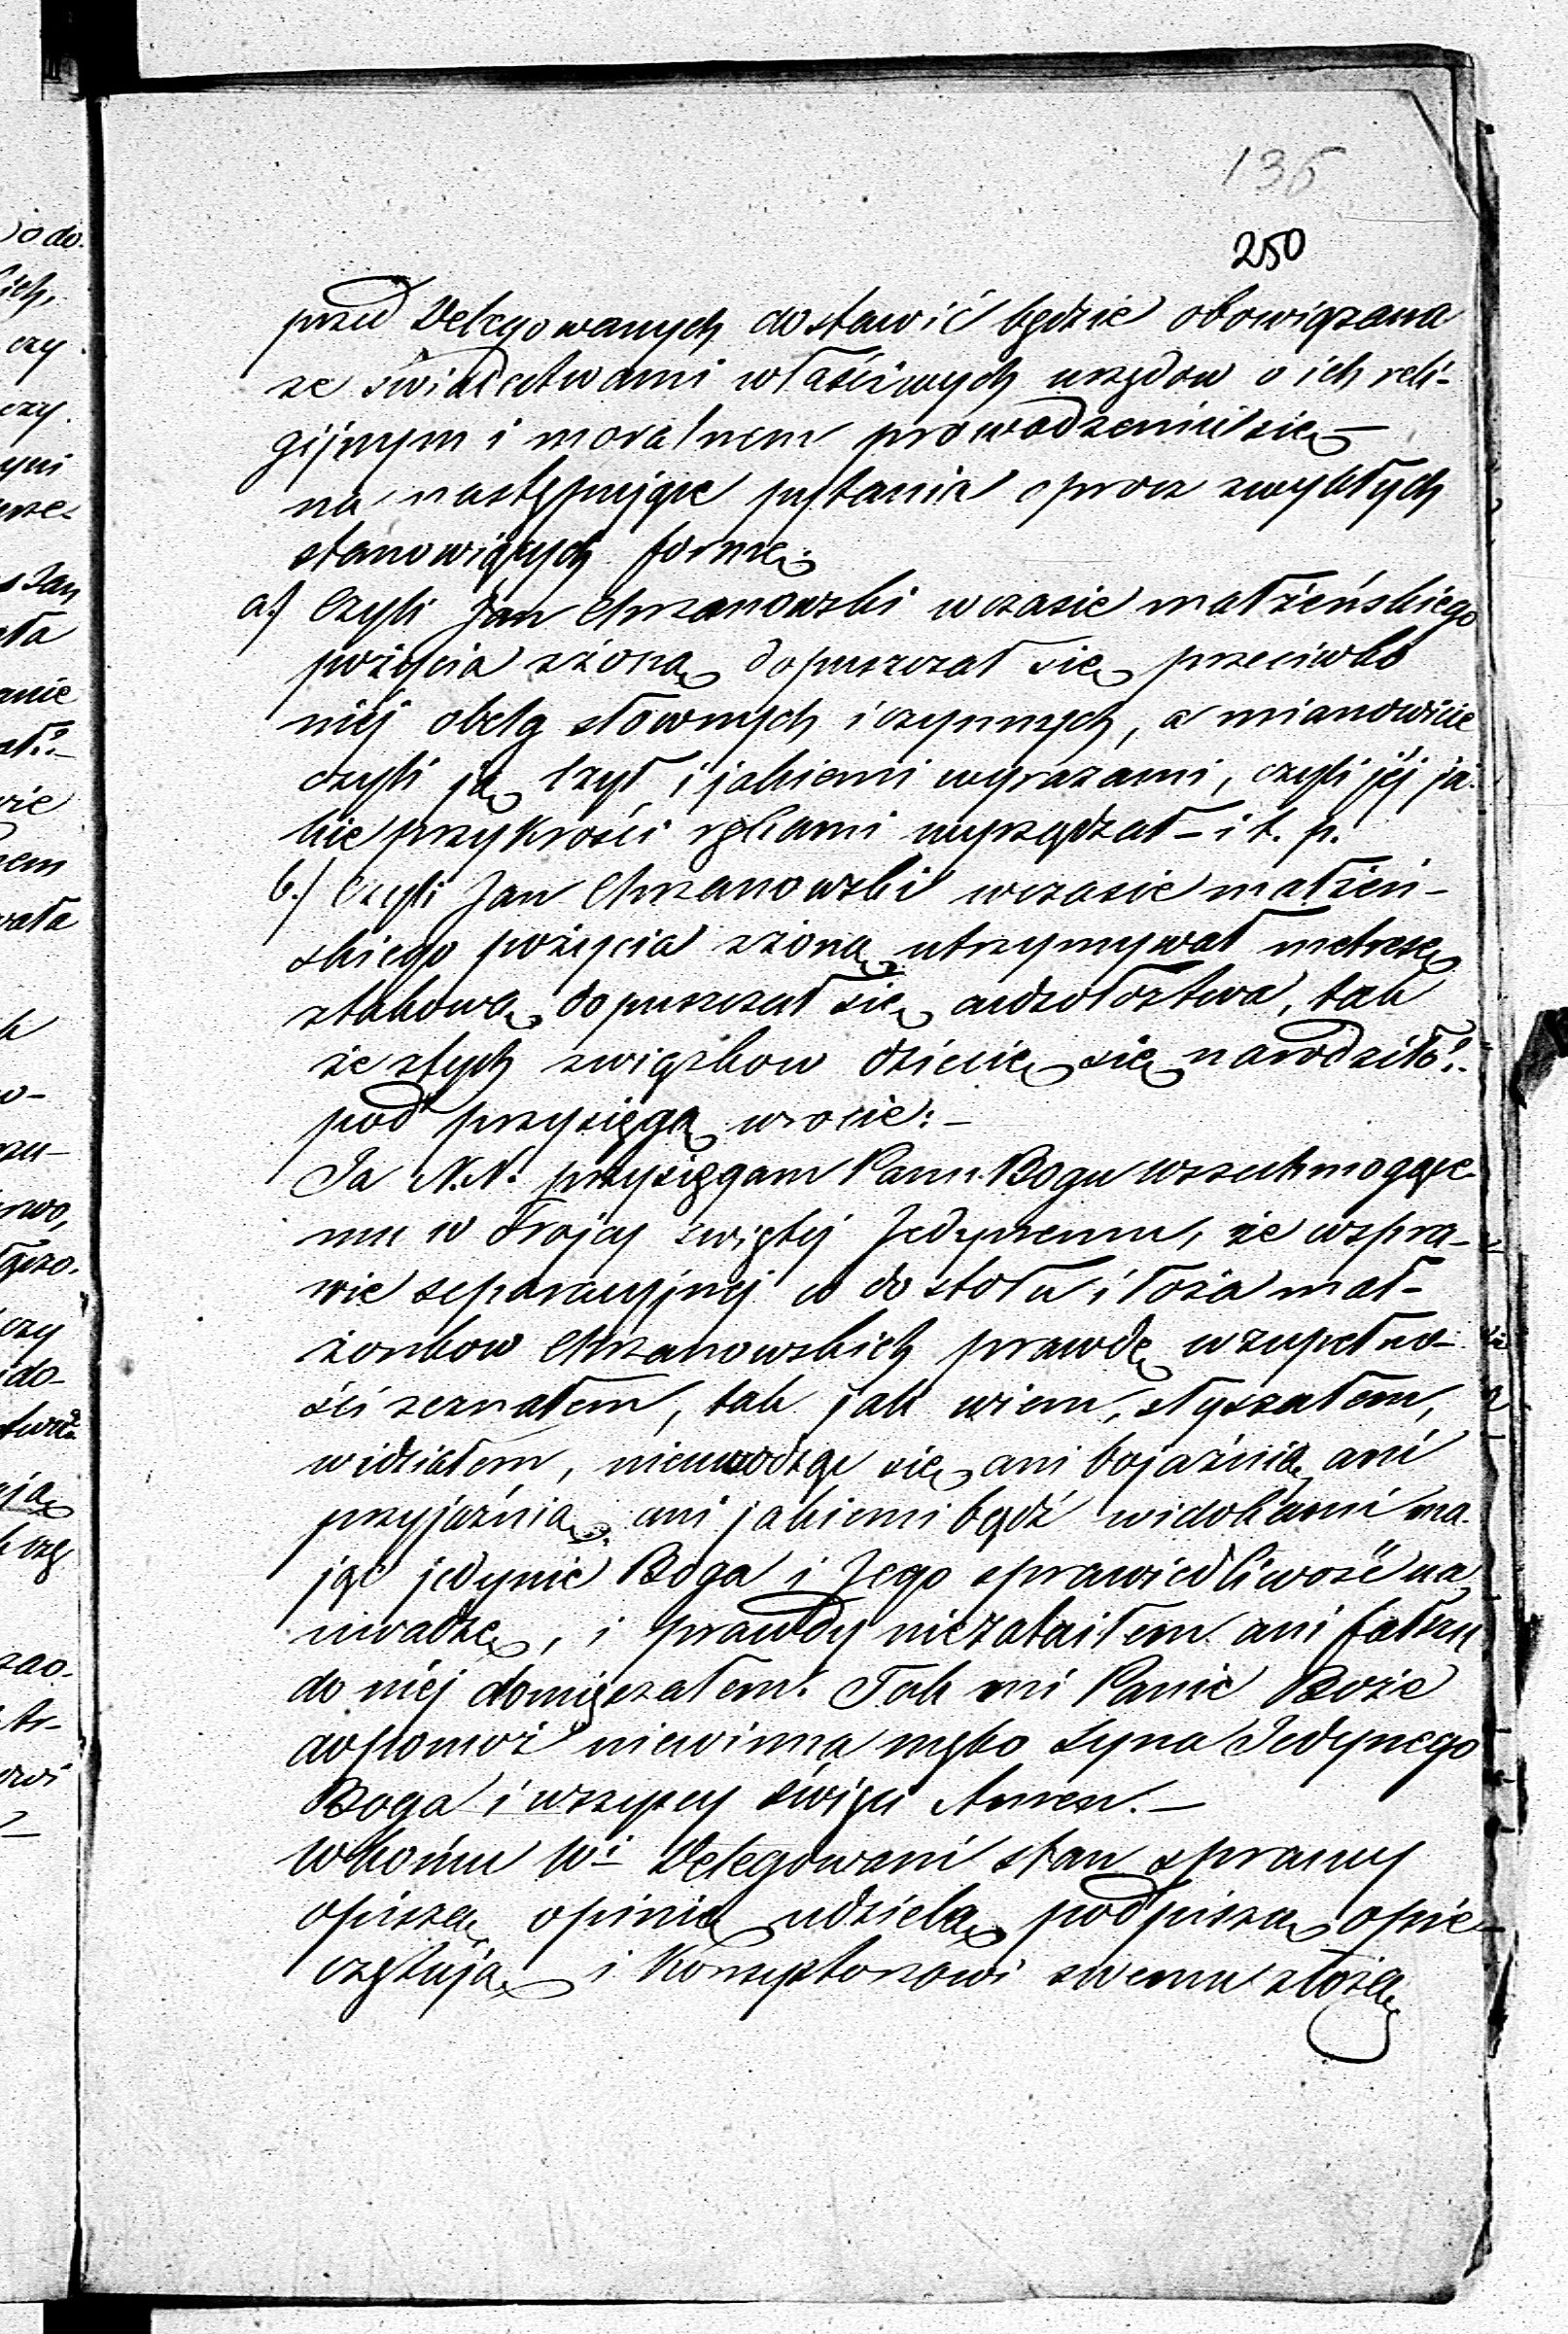 136
250
przed Delegowanych dostawić będzie obowiązana
ze świadectwami właściwych urzędow o ich reli-
gijnym i moralnem prowadzeniu się –
na następujące pytania oprocz zwykłych
stanowiących formę.
a.) Czyli Jan Chrzanowski wczasie małżeńskiego
pożycia zżoną dopuszczał się przeciwko
niéj obelg słownych i czynnych, a mianowicie
czyli ją lżył i jakiemi wyrazami, czyli jéj ja-
kie przykrości rękami wyrządzał – i t. p.
b.) Czyli Jan Chrzanowski wczasie małżeń-
skiego pożycia zżoną utrzymywał metressę
ztakową dopuszczał się cudzołoztwa, tak
że ztych związkow dziecię się narodziło?.
pod przysięgą wrocie: –
Ja N.N. przysięgam Panu Bogu wszechmogące-
mu w Trojcy świętej Jedynemu, że wspra-
wie separacyjnej co do stołu i łoża mał-
żonkow Chrzanowskich prawdę wzupełno-
ści zeznałem, tak jak wiem, słyszałem,
widziałem, nieuwodząc się ani bojaźnią ani
przyjaźnią, ani jakiemi bądź widokami ma-
jąc jedynie Boga i Jego sprawiedliwość na
uwadze, i prawdy niezataiłem ani fałszu
do niéj domięszałem. Tak mi Panie Boże
dopomoż niewinna męko Syna Jedynego
Boga i wszyscy święci Amen. –
Wkońcu Wi Delegowani stan sprawy
opiszą, opinię udzielą, podpiszą, opie-
czętują i Konsystorzowi swemu złożą